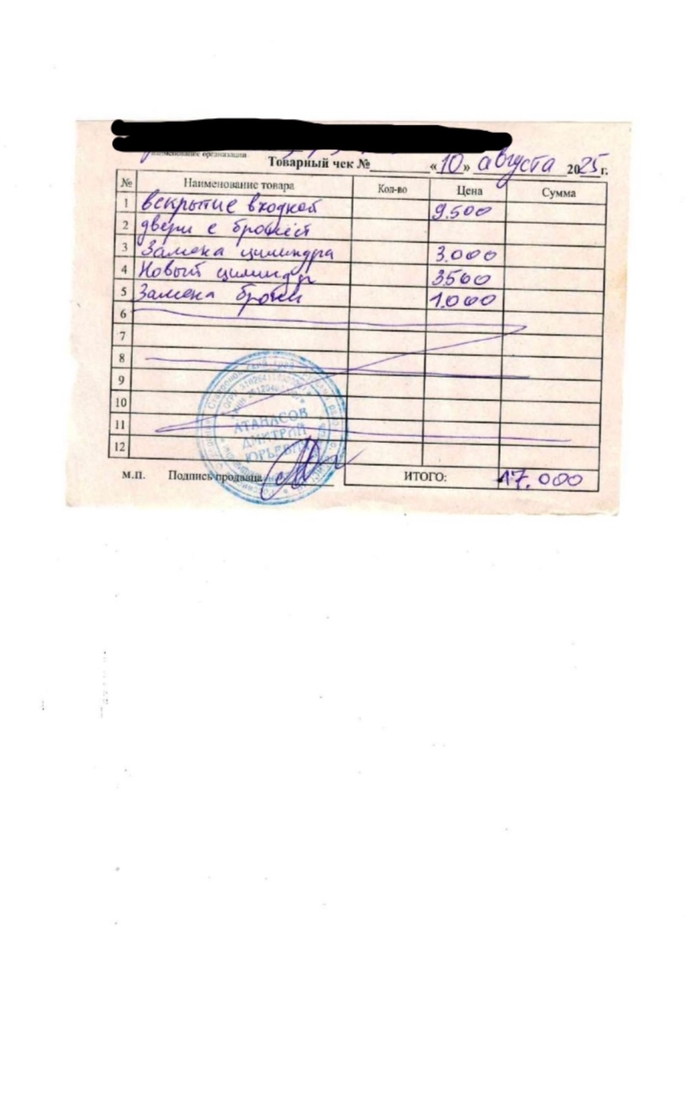 наименование организации
Товарный чек № «10» августа 2025 г.
№ Наименование товара Кол-во Цена Сумма
1 вскрытие входной 9.500
2 двери с
3 Замена цилиндра 3.000
4 Новый цилиндр 3500
5 Замена 1.000
6
7
8
9
10
11
12
АТАНАСОВ
ДМИТРИЙ
ЮРЬЕВИЧ
М.П. Подпись продавца ИТОГО: 17.000